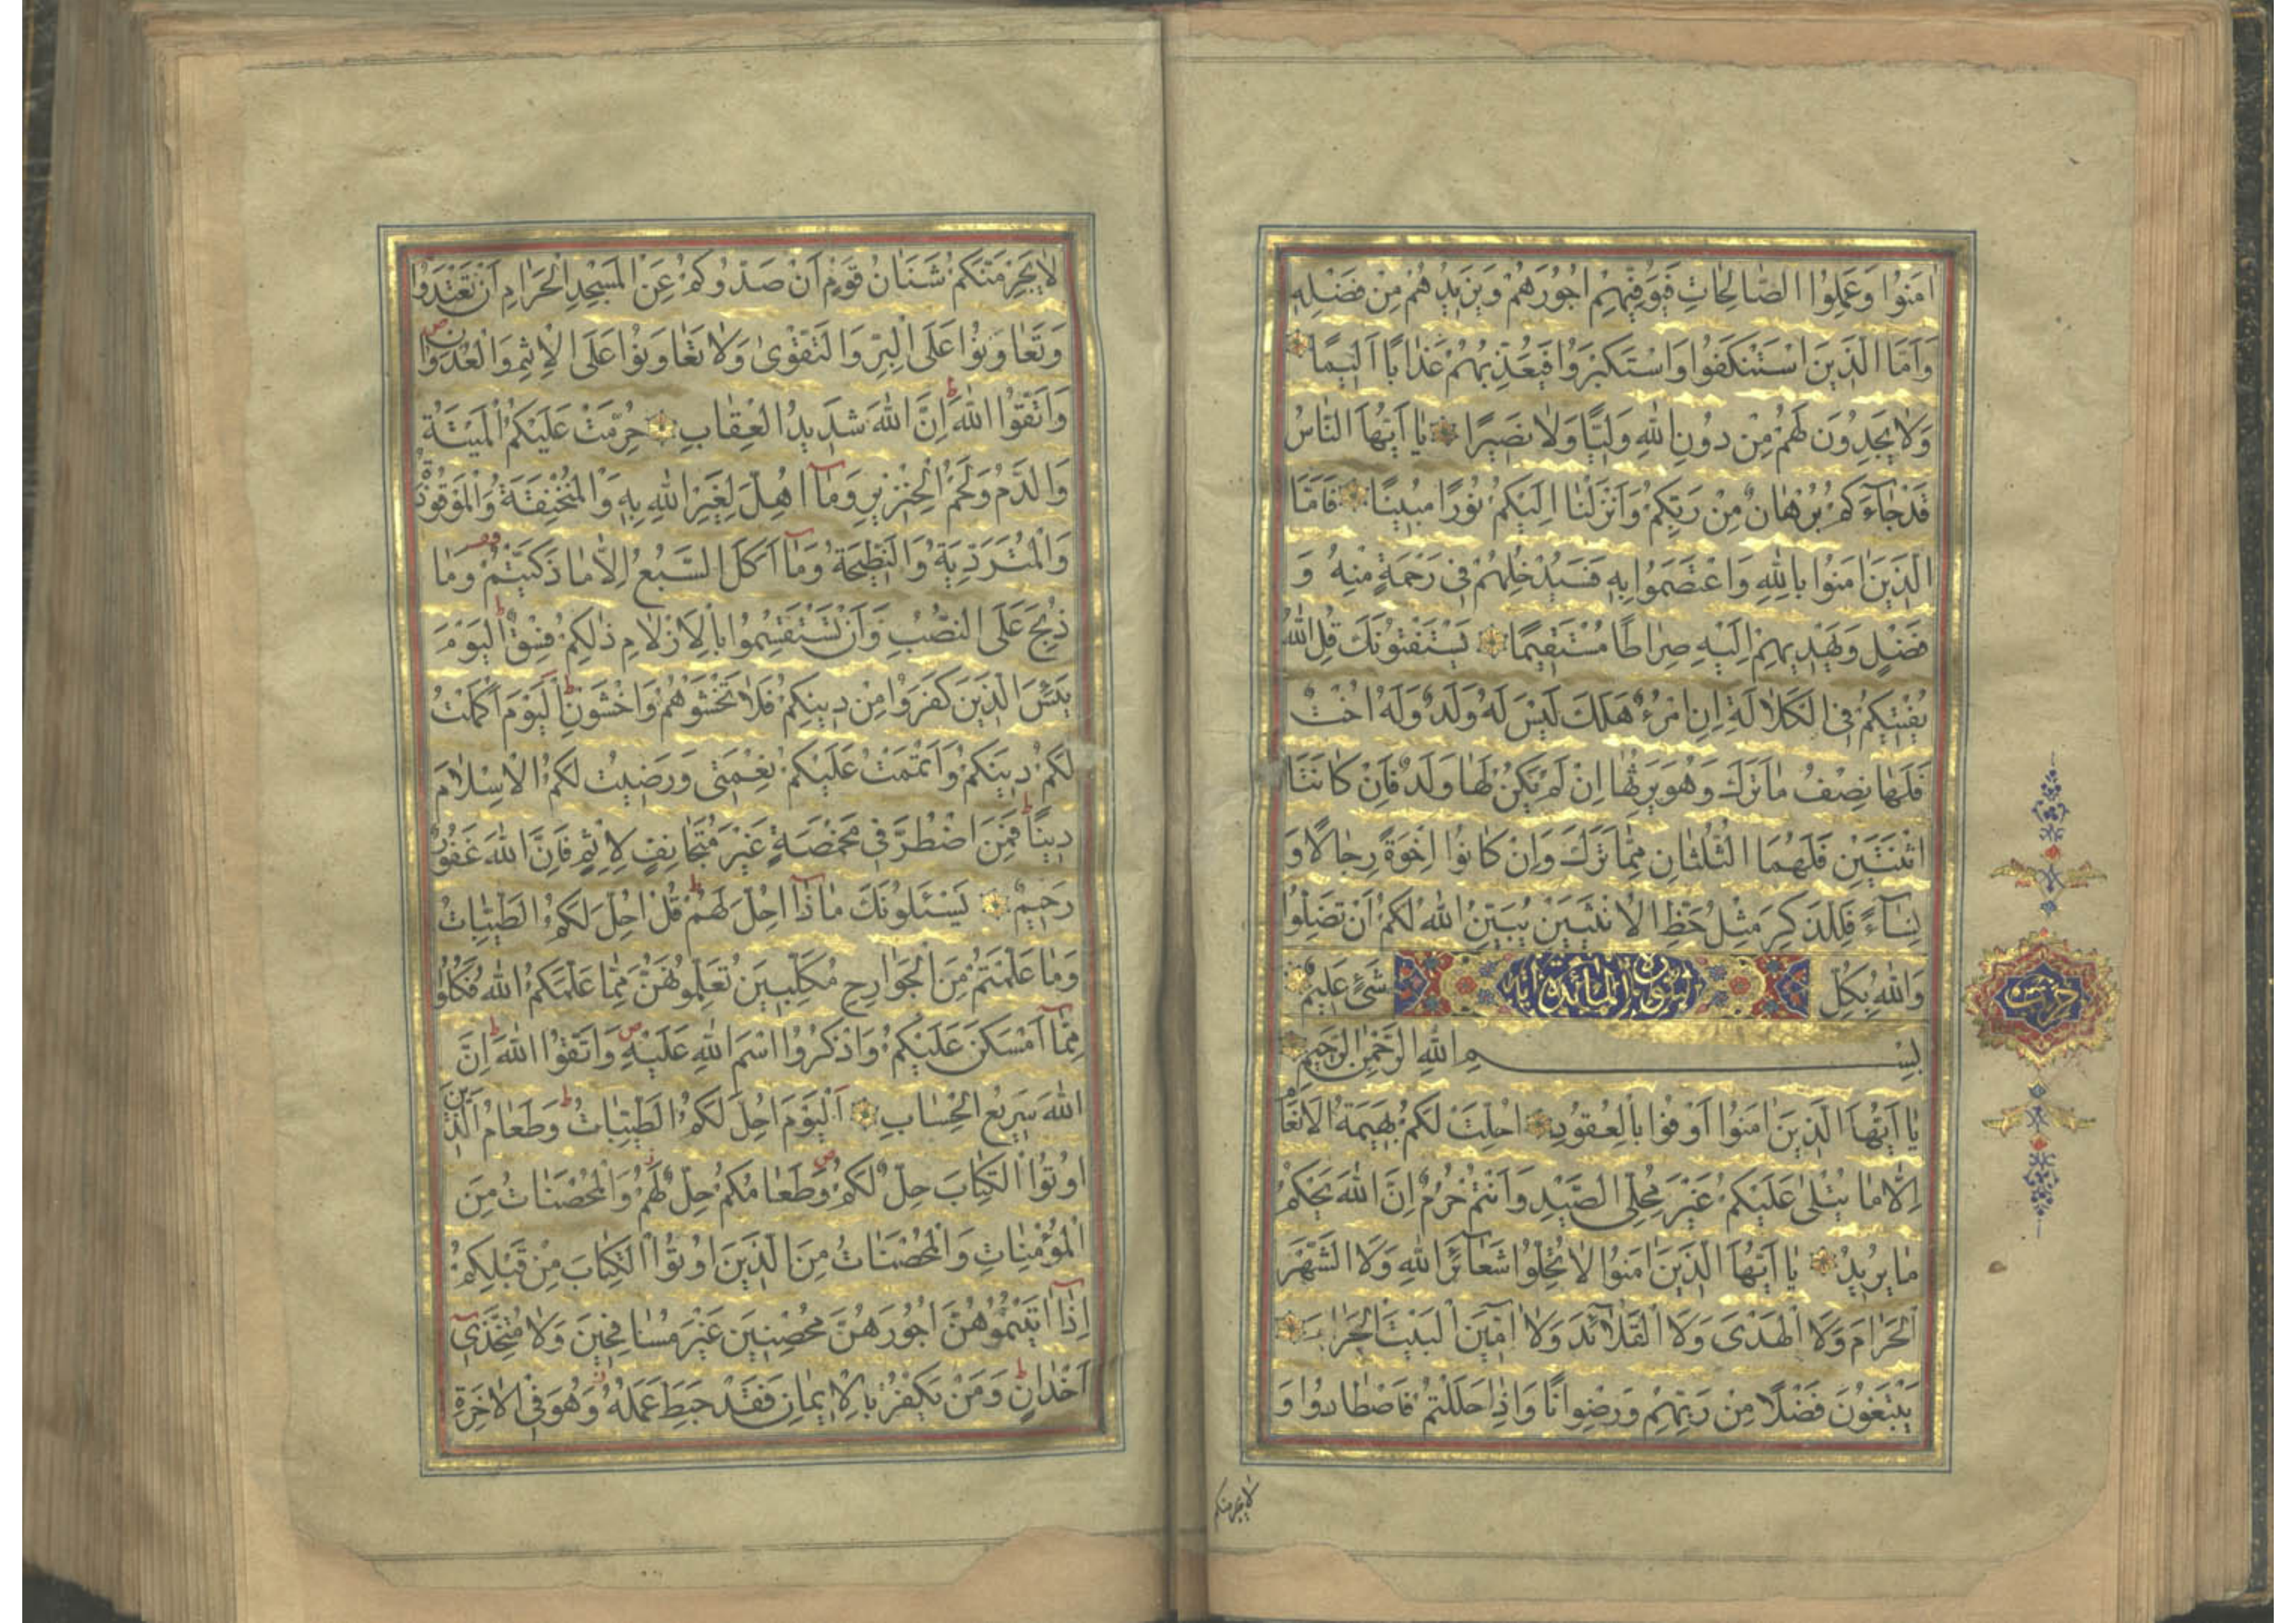 اٰمَنُوا وَعَمِلُوا الصَّالِحَاتِ فَيُوَفِّيهِمْ اُجُورَهُمْ وَيَزِيدُهُمْ مِنْ فَضْلِهِ
وَاَمَّا الَّذِينَ اسْتَنْكَفُوا وَاسْتَكْبَرُوا فَيُعَذِّبُهُمْ عَذَابًا اَلِيمًا
وَلَا يَجِدُونَ لَهُمْ مِنْ دُونِ اللهِ وَلِيًّا وَلَا نَصِيرًا يَا اَيُّهَا النَّاسُ
قَدْ جَاءَكُمْ بُرْهَانٌ مِنْ رَبِّكُمْ وَاَنْزَلْنَا اِلَيْكُمْ نُورًا مُبِينًا فَاَمَّا
الَّذِينَ اٰمَنُوا بِاللهِ وَاعْتَصَمُوا بِهِ فَسَيُدْخِلُهُمْ فِي رَحْمَةٍ مِنْهُ وَ
فَضْلٍ وَيَهْدِيهِمْ اِلَيْهِ صِرَاطًا مُسْتَقِيمًا يَسْتَفْتُونَكَ قُلِ اللهُ
يُفْتِيكُمْ فِي الْكَلَالَةِ اِنِ امْرُءٌ هَلَكَ لَيْسَ لَهُ وَلَدٌ وَلَهُ اُخْتٌ
فَلَهَا نِصْفُ مَا تَرَكَ وَهُوَ يَرِثُهَا اِنْ لَمْ يَكُنْ لَهَا وَلَدٌ فَاِنْ كَانَتَا
اثْنَتَيْنِ فَلَهُمَا الثُّلُثَانِ مِمَّا تَرَكَ وَاِنْ كَانُوا اِخْوَةً رِجَالًا وَ
نِسَاءً فَلِلذَّكَرِ مِثْلُ حَظِّ الْاُنْثَيَيْنِ يُبَيِّنُ اللهُ لَكُمْ اَنْ تَضِلُّوا
وَاللهُ بِكُلِّ شَيْءٍ عَلِيمٌ
سورة المائدة
بِسْمِ اللهِ الرَّحْمٰنِ الرَّحِيمِ
يَا اَيُّهَا الَّذِينَ اٰمَنُوا اَوْفُوا بِالْعُقُودِ اُحِلَّتْ لَكُمْ بَهِيمَةُ الْاَنْعَامِ
اِلَّا مَا يُتْلٰى عَلَيْكُمْ غَيْرَ مُحِلِّي الصَّيْدِ وَاَنْتُمْ حُرُمٌ اِنَّ اللهَ يَحْكُمُ
مَا يُرِيدُ يَا اَيُّهَا الَّذِينَ اٰمَنُوا لَا تُحِلُّوا شَعَائِرَ اللهِ وَلَا الشَّهْرَ
الْحَرَامَ وَلَا الْهَدْيَ وَلَا الْقَلَائِدَ وَلَا اٰمِّينَ الْبَيْتَ الْحَرَامَ
يَبْتَغُونَ فَضْلًا مِنْ رَبِّهِمْ وَرِضْوَانًا وَاِذَا حَلَلْتُمْ فَاصْطَادُوا وَ
لا يجرمنكم
لَا يَجْرِمَنَّكُمْ شَنَاٰنُ قَوْمٍ اَنْ صَدُّوكُمْ عَنِ الْمَسْجِدِ الْحَرَامِ اَنْ تَعْتَدُوا
وَتَعَاوَنُوا عَلَى الْبِرِّ وَالتَّقْوٰى وَلَا تَعَاوَنُوا عَلَى الْاِثْمِ وَالْعُدْوَانِ
وَاتَّقُوا اللهَ اِنَّ اللهَ شَدِيدُ الْعِقَابِ حُرِّمَتْ عَلَيْكُمُ الْمَيْتَةُ
وَالدَّمُ وَلَحْمُ الْخِنْزِيرِ وَمَا اُهِلَّ لِغَيْرِ اللهِ بِهِ وَالْمُنْخَنِقَةُ وَالْمَوْقُوذَةُ
وَالْمُتَرَدِّيَةُ وَالنَّطِيحَةُ وَمَا اَكَلَ السَّبُعُ اِلَّا مَا ذَكَّيْتُمْ وَمَا
ذُبِحَ عَلَى النُّصُبِ وَاَنْ تَسْتَقْسِمُوا بِالْاَزْلَامِ ذٰلِكُمْ فِسْقٌ اَلْيَوْمَ
يَئِسَ الَّذِينَ كَفَرُوا مِنْ دِينِكُمْ فَلَا تَخْشَوْهُمْ وَاخْشَوْنِ اَلْيَوْمَ اَكْمَلْتُ
لَكُمْ دِينَكُمْ وَاَتْمَمْتُ عَلَيْكُمْ نِعْمَتِي وَرَضِيتُ لَكُمُ الْاِسْلَامَ
دِينًا فَمَنِ اضْطُرَّ فِي مَخْمَصَةٍ غَيْرَ مُتَجَانِفٍ لِاِثْمٍ فَاِنَّ اللهَ غَفُورٌ
رَحِيمٌ يَسْئَلُونَكَ مَاذَا اُحِلَّ لَهُمْ قُلْ اُحِلَّ لَكُمُ الطَّيِّبَاتُ
وَمَا عَلَّمْتُمْ مِنَ الْجَوَارِحِ مُكَلِّبِينَ تُعَلِّمُونَهُنَّ مِمَّا عَلَّمَكُمُ اللهُ فَكُلُوا
مِمَّا اَمْسَكْنَ عَلَيْكُمْ وَاذْكُرُوا اسْمَ اللهِ عَلَيْهِ وَاتَّقُوا اللهَ اِنَّ
اللهَ سَرِيعُ الْحِسَابِ اَلْيَوْمَ اُحِلَّ لَكُمُ الطَّيِّبَاتُ وَطَعَامُ الَّذِينَ
اُوتُوا الْكِتَابَ حِلٌّ لَكُمْ وَطَعَامُكُمْ حِلٌّ لَهُمْ وَالْمُحْصَنَاتُ مِنَ
الْمُؤْمِنَاتِ وَالْمُحْصَنَاتُ مِنَ الَّذِينَ اُوتُوا الْكِتَابَ مِنْ قَبْلِكُمْ
اِذَا اٰتَيْتُمُوهُنَّ اُجُورَهُنَّ مُحْصِنِينَ غَيْرَ مُسَافِحِينَ وَلَا مُتَّخِذِي
اَخْدَانٍ وَمَنْ يَكْفُرْ بِالْاِيمَانِ فَقَدْ حَبِطَ عَمَلُهُ وَهُوَ فِي الْاٰخِرَةِ